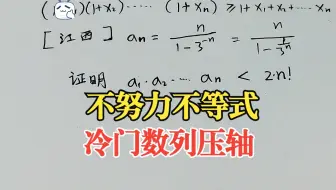 )(1+x₂)...... (1+xₙ) ≥ 1+x₁+x₂+......+xₙ
[江西] aₙ = n/(1-3⁻ⁿ) = n/(1-1/3ⁿ)
证明 a₁·a₂...... aₙ < 2·n!
不努力不等式
冷门数列压轴